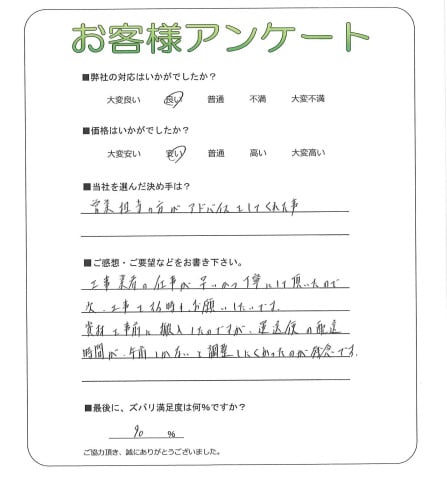 お客様アンケート
■弊社の対応はいかがでしたか？
大変良い 良い 普通 不満 大変不満
■価格はいかがでしたか？
大変安い 安い 普通 高い 大変高い
■当社を選んだ決め手は？
営業担当の方がアドバイスをしてくれた事
■ご感想・ご要望などをお書き下さい。
工事業者の仕事が早いかつ丁寧にして頂いたので
次、工事する時もお願いしたいです。
資材を事前に搬入したのですが、運送便の配達
時間が、午前しか 調整しにくかったのが残念です。
■最後に、ズバリ満足度は何%ですか？
90 %
ご協力頂き、誠にありがとうございました。